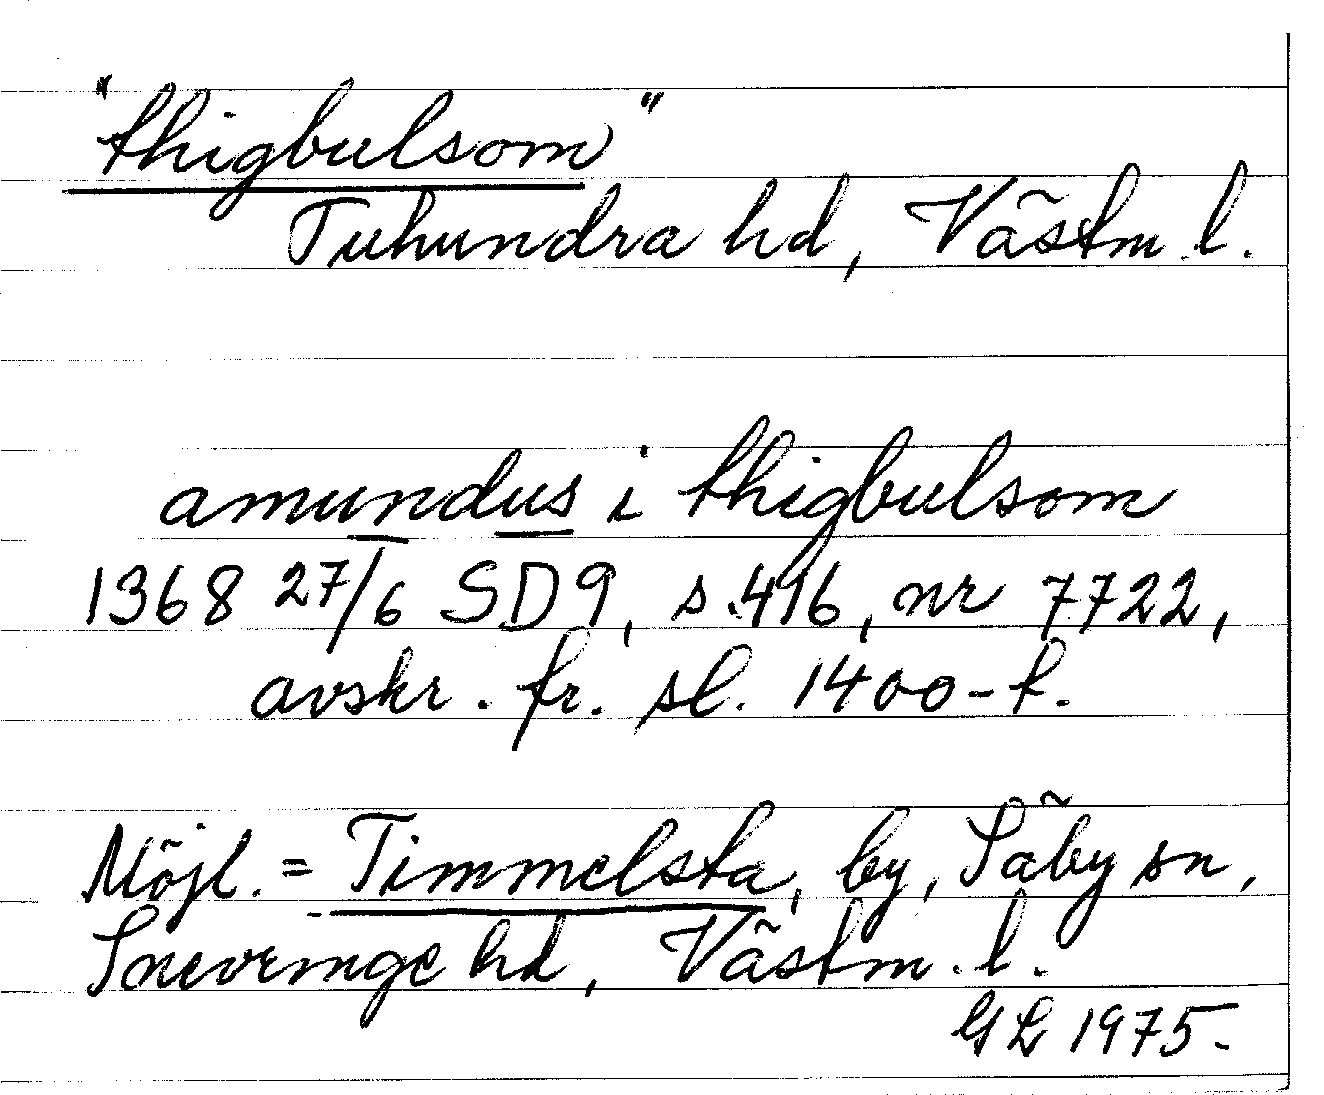 "thigbulsom"
Tuhundra hd, Västm. l.
amundus i thigbulsom
1368 27/6 SD9, s. 496, nr 7722,
avskr. fr. sl. 1400-t.
Möjl. = Timmelsta, by, Säby sn,
Snevringe hd, Västm. l.
GL 1975.